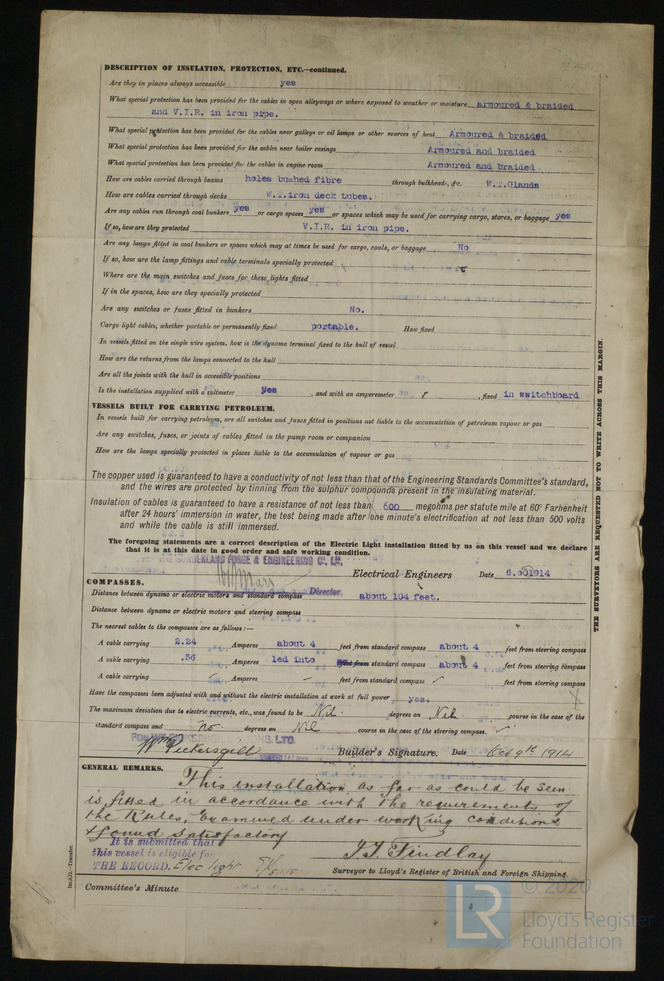 DESCRIPTION OF INSULATION, PROTECTION, ETC.—continued.
Are they in places always accessible yes
What special protection has been provided for the cables in open alleyways or where exposed to weather or moisture armoured & braided
and V.I.R. in iron pipe.
What special protection has been provided for the cables near galleys or oil lamps or other sources of heat Armoured & braided
What special protection has been provided for the cables near boiler casings Armoured and braided
What special protection has been provided for the cables in engine room Armoured and braided
How are cables carried through beams holes bushed fibre through bulkheads, &c. W.T.Glands
How are cables carried through decks W.T.iron deck tubes.
Are any cables run through coal bunkers yes or cargo spaces yes or spaces which may be used for carrying cargo, stores, or baggage yes
If so, how are they protected V.I.R. in iron pipe.
Are any lamps fitted in coal bunkers or spaces which may at times be used for cargo, coals, or baggage No
If so, how are the lamp fittings and cable terminals specially protected
Where are the main switches and fuses for these lights fitted
If in the spaces, how are they specially protected
Are any switches or fuses fitted in bunkers No.
Cargo light cables, whether portable or permanently fixed portable. How fixed
In vessels fitted on the single wire system, how is the dynamo terminal fixed to the hull of vessel
How are the returns from the lamps connected to the hull
Are all the joints with the hull in accessible positions
Is the installation supplied with a voltmeter yes , and with an amperemeter , fixed in switchboard
VESSELS BUILT FOR CARRYING PETROLEUM.
In vessels built for carrying petroleum, are all switches and fuses fitted in positions not liable to the accumulation of petroleum vapour or gas
Are any switches, fuses, or joints of cables fitted in the pump room or companion
How are the lamps specially protected in places liable to the accumulation of vapour or gas
The copper used is guaranteed to have a conductivity of not less than that of the Engineering Standards Committee's standard,
and the wires are protected by tinning from the sulphur compounds present in the insulating material.
Insulation of cables is guaranteed to have a resistance of not less than 600 megohms per statute mile at 60° Farhenheit
after 24 hours' immersion in water, the test being made after one minute's electrification at not less than 500 volts
and while the cable is still immersed.
The foregoing statements are a correct description of the Electric Light installation fitted by us on this vessel and we declare
that it is at this date in good order and safe working condition.
FORGE & ENGINEERING Co. Ld.
Electrical Engineers Date 1914
Director.
COMPASSES.
Distance between dynamo or electric motors and standard compass about 104 feet.
Distance between dynamo or electric motors and steering compass
The nearest cables to the compasses are as follows:—
A cable carrying 2.24 Amperes about 4 feet from standard compass about 4 feet from steering compass
A cable carrying .56 Amperes led into feet from standard compass about 4 feet from steering compass
A cable carrying Amperes feet from standard compass feet from steering compass
Have the compasses been adjusted with and without the electric installation at work at full power yes.
The maximum deviation due to electric currents, etc., was found to be Nil degrees on Nil course in the case of the
standard compass and no. degrees on Nil course in the case of the steering compass.
Wm Pickersgill Builder's Signature. Date Oct 9th 1914
GENERAL REMARKS.
This installation as far as could be seen
is fitted in accordance with the requirements of
the Rules, examined under working conditions
& found satisfactory
It is submitted that
this vessel is eligible for
THE RECORD. Elec light
J.T. Findlay
Surveyor to Lloyd's Register of British and Foreign Shipping.
Committee's Minute
THE SURVEYORS ARE REQUESTED NOT TO WRITE ACROSS THIS MARGIN.
LR
© 2020
Lloyd's Register
Foundation